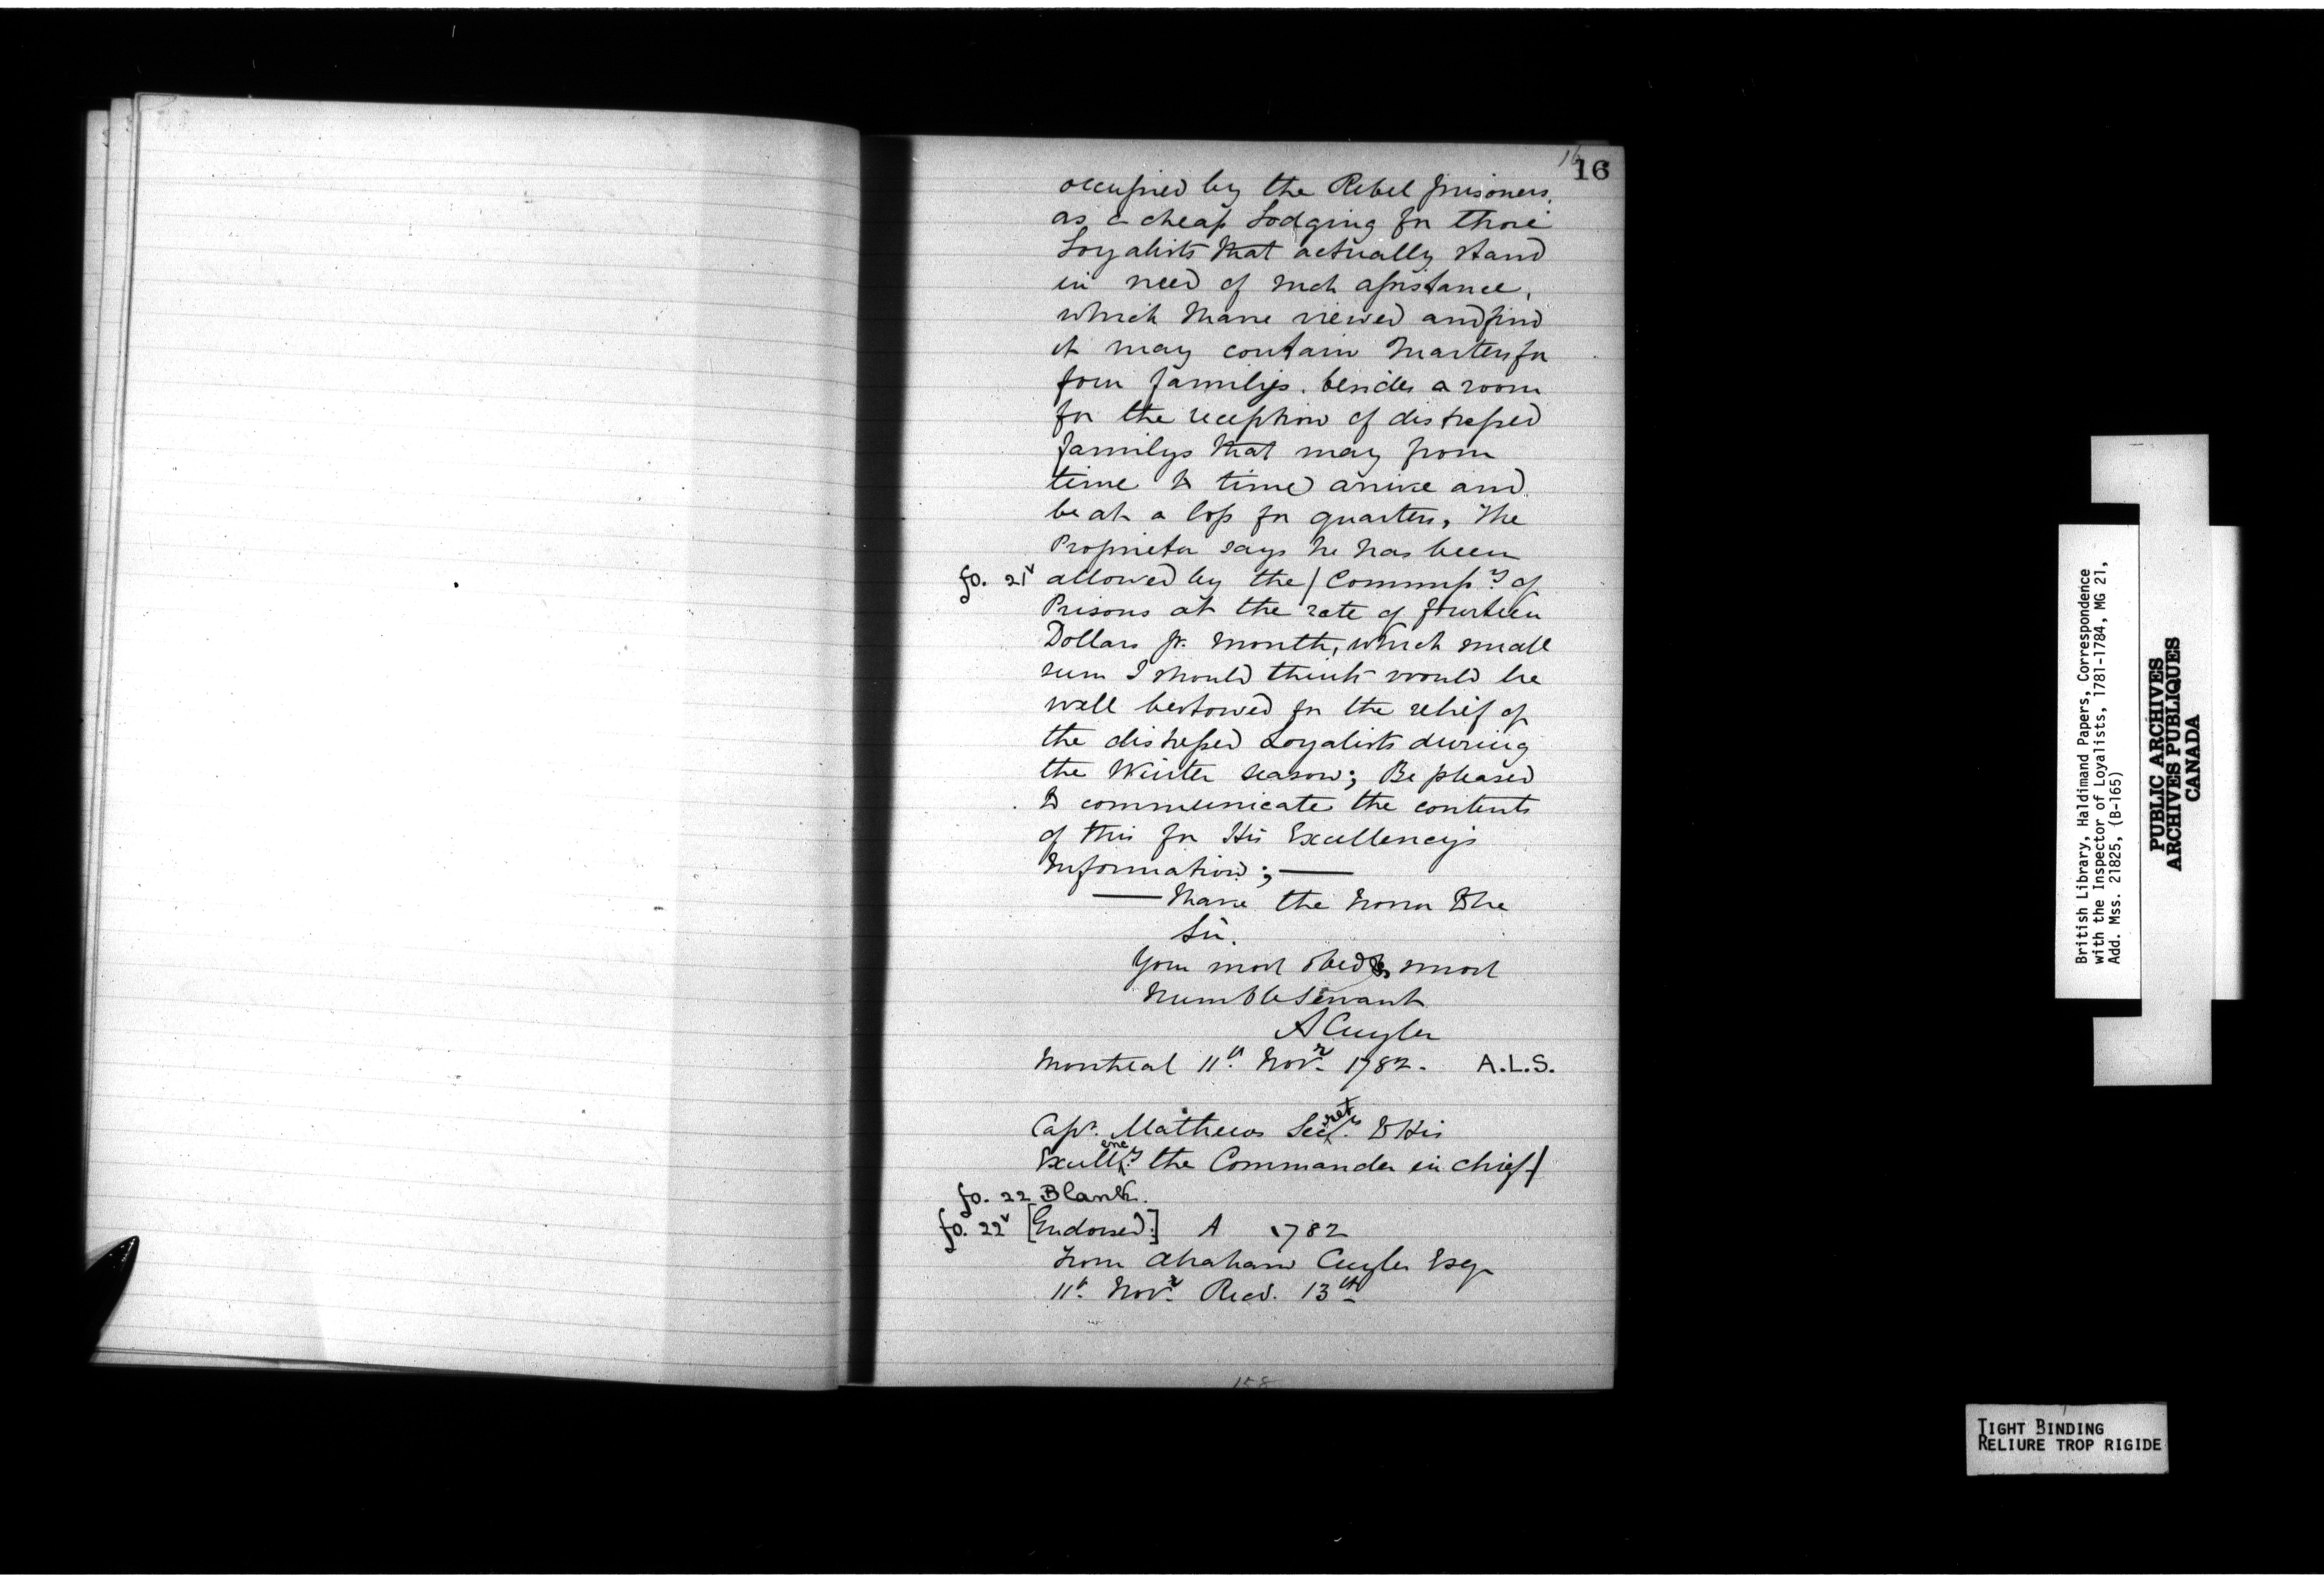 16
16
occupied by the Rebel prisoners,
as a cheap Lodging for those
Loyalists that actually stand
in need of such assistance,
which I have viewed and find
it may contain Quarters for
four familys. besides a room
for the reception of distressed
familys that may from
time to time arrive and
be at a loss for quarters, The
Proprietor says he has been
fo. 21v allowed by the / Commissy of
Prisons at the rate of fourteen
Dollars pr. month, which small
sum I should think would be
well bestowed for the relief of
the distressed Loyalists during
the Winter season; Be pleased
to communicate the contents
of this for His Excellency's
Information; —
— I have the honor to be
Sir.
Your most obedt & most
humble Servant
A Cuyler
Montreal 11th Novr 1782. A.L.S.
Capt. Mathews Secrety. to His
Excellency the Commander in chief/
fo. 22 Blank.
fo. 22v [Endorsed:] A 1782
From Abraham Cuyler Esqr
11th Novr Recd. 13th
158
British Library, Haldimand Papers, Correspondence
with the Inspector of Loyalists, 1781-1784, MG 21,
Add. Mss. 21825, (B-165)
PUBLIC ARCHIVES
ARCHIVES PUBLIQUES
CANADA
TIGHT BINDING
RELIURE TROP RIGIDE